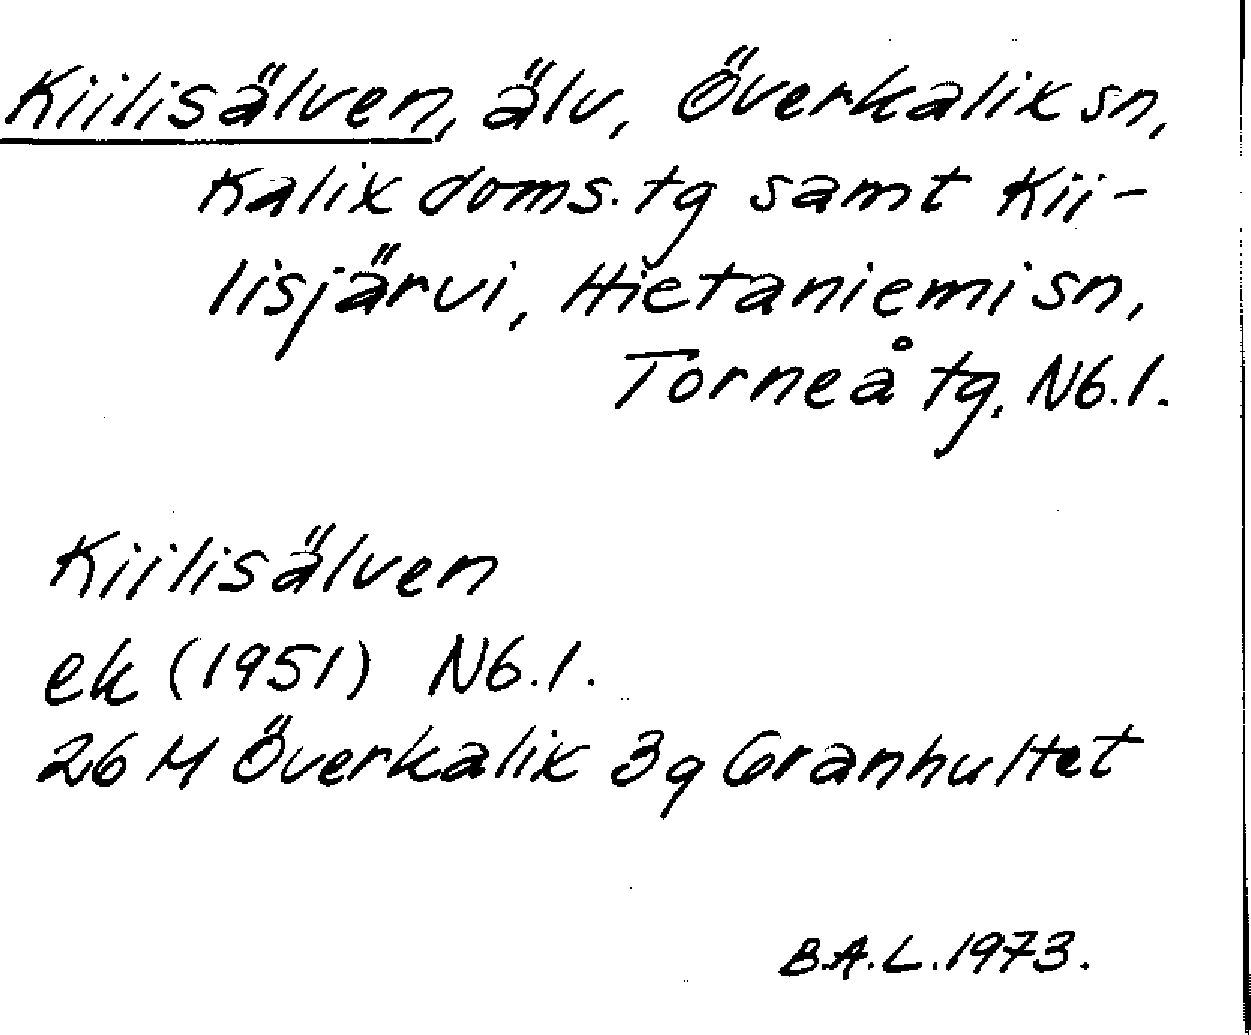 Kiilisälven, älv, Överkalix sn,
Kalix doms. tg samt Kii-
lisjärvi, Hietaniemi sn,
Torneå tg. Nb.l.
Kiilisälven
ek (1951) Nb.l.
26 M Överkalix 3g Granhultet
B.A.L. 1973.